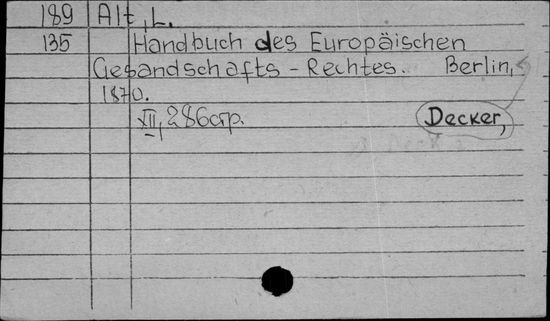 189 Alt, L.
135 Handbuch des Europäischen
Gesandschafts - Rechtes. Berlin,
1870.
XII, 286 стр. Decker,